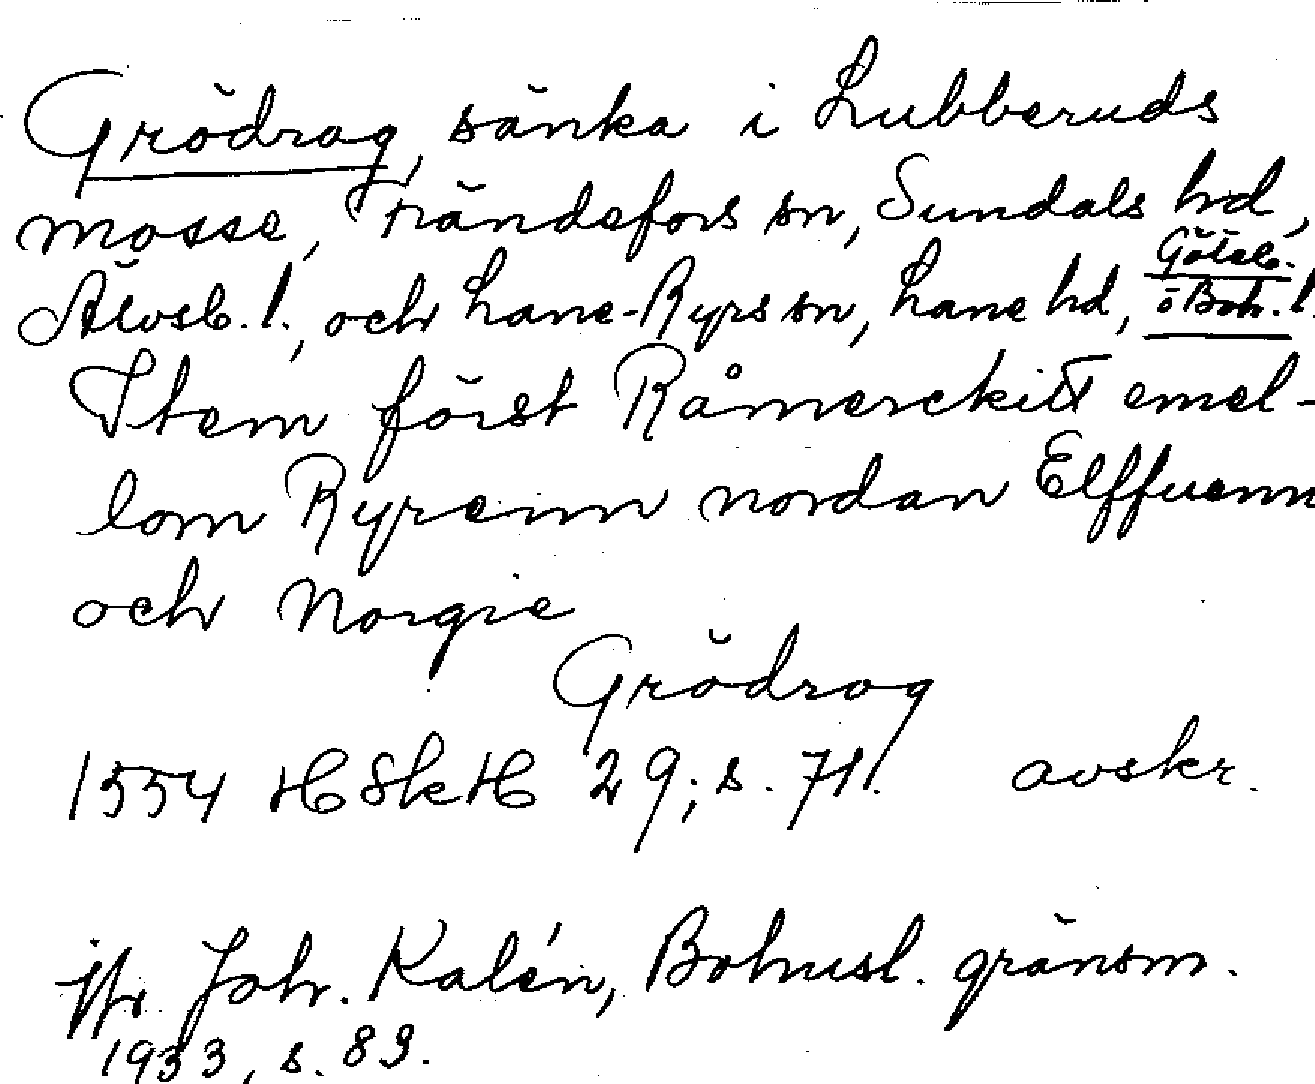 Grödrag, sänka i Lubberuds
mosse, Frändefors sn, Sundals hd,
Älvsb. l., och Lane-Ryrs sn, Lane hd, Göteb. o Boh. l.
Item först Råmerckitt emel-
lom Ryrenn nordan Elffuenn
och Norgie
Grödrag
1554 HSkH 29; s. 71. avskr.
jfr. Joh. Kalén, Bohusl. gränsm.
1933, s. 89.